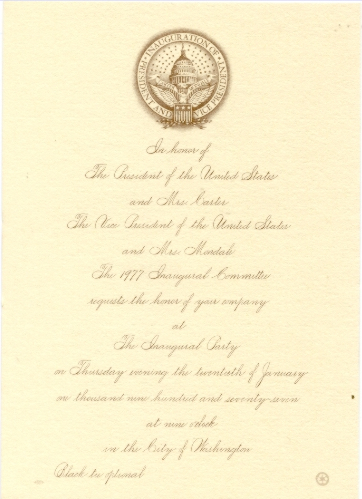 INAUGURATION OF PRESIDENT AND VICE PRESIDENT
In honor of
The President of the United States
and Mrs Carter
The Vice President of the United States
and Mrs Mondale
The 1977 Inaugural Committee
requests the honor of your company
at
The Inaugural Party
on Thursday evening the twentieth of January
on thousand nine hundred and seventy-seven
at nine oclock
in the City of Washington
Black tie optional